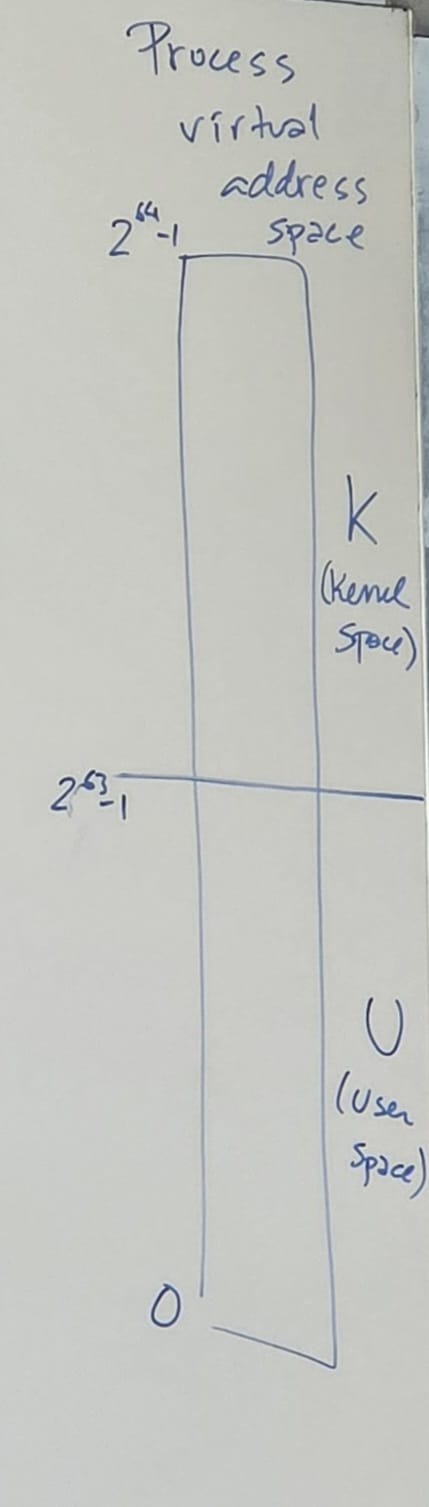 Process
virtual
address
space
2^64-1
K
(Kernel
Space)
2^63-1
U
(User
Space)
0